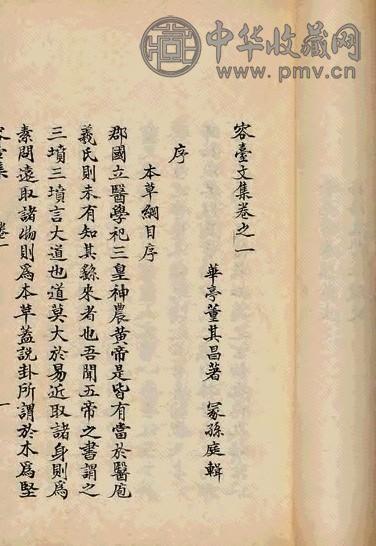 中华收藏网
www.pmv.cn
容臺文集卷之一
華亭董其昌著 冢孫庭輯
序
本草綱目序
郡國立醫學祀三皇神農黄帝是皆有當於醫庖
羲氏則未有知其繇來者也吾聞五帝之書謂之
三墳三墳言大道也道莫大於易近取諸身則爲
素問遠取諸物則爲本草蓋說卦所謂於木爲堅
容臺集 卷一 一